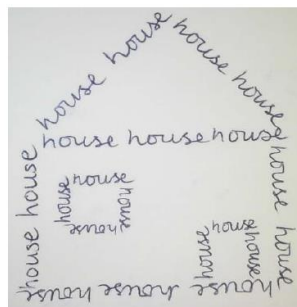 house house
house house
house house house
house house
house house
house
house
house
house
house
house
house
house house house